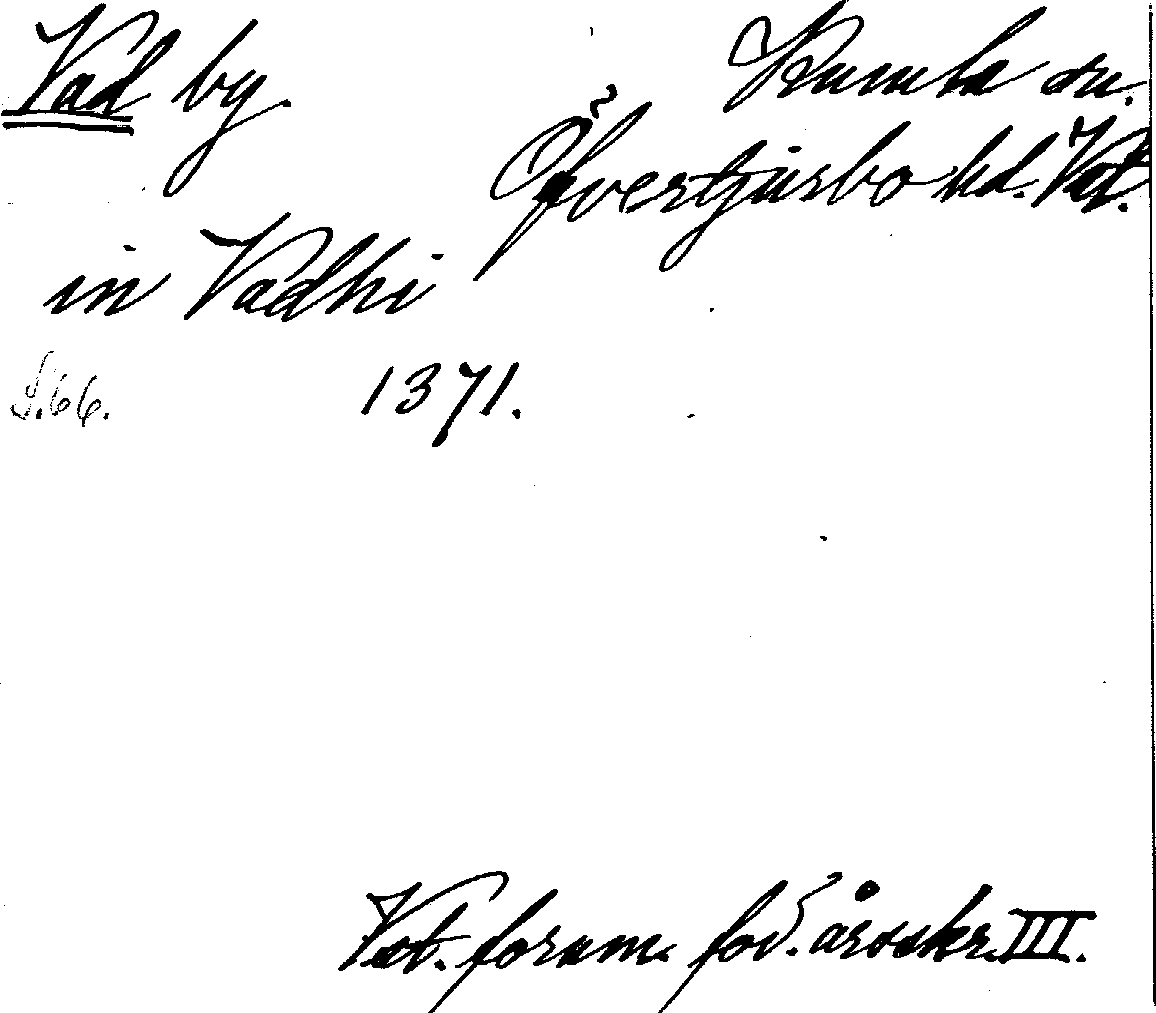 Vad by. Kumla sn.
Öfvertjurbo hd. Vst.
in Vadhi
S. 66. 1371.
Vst. fornm. för. årsskr. III.